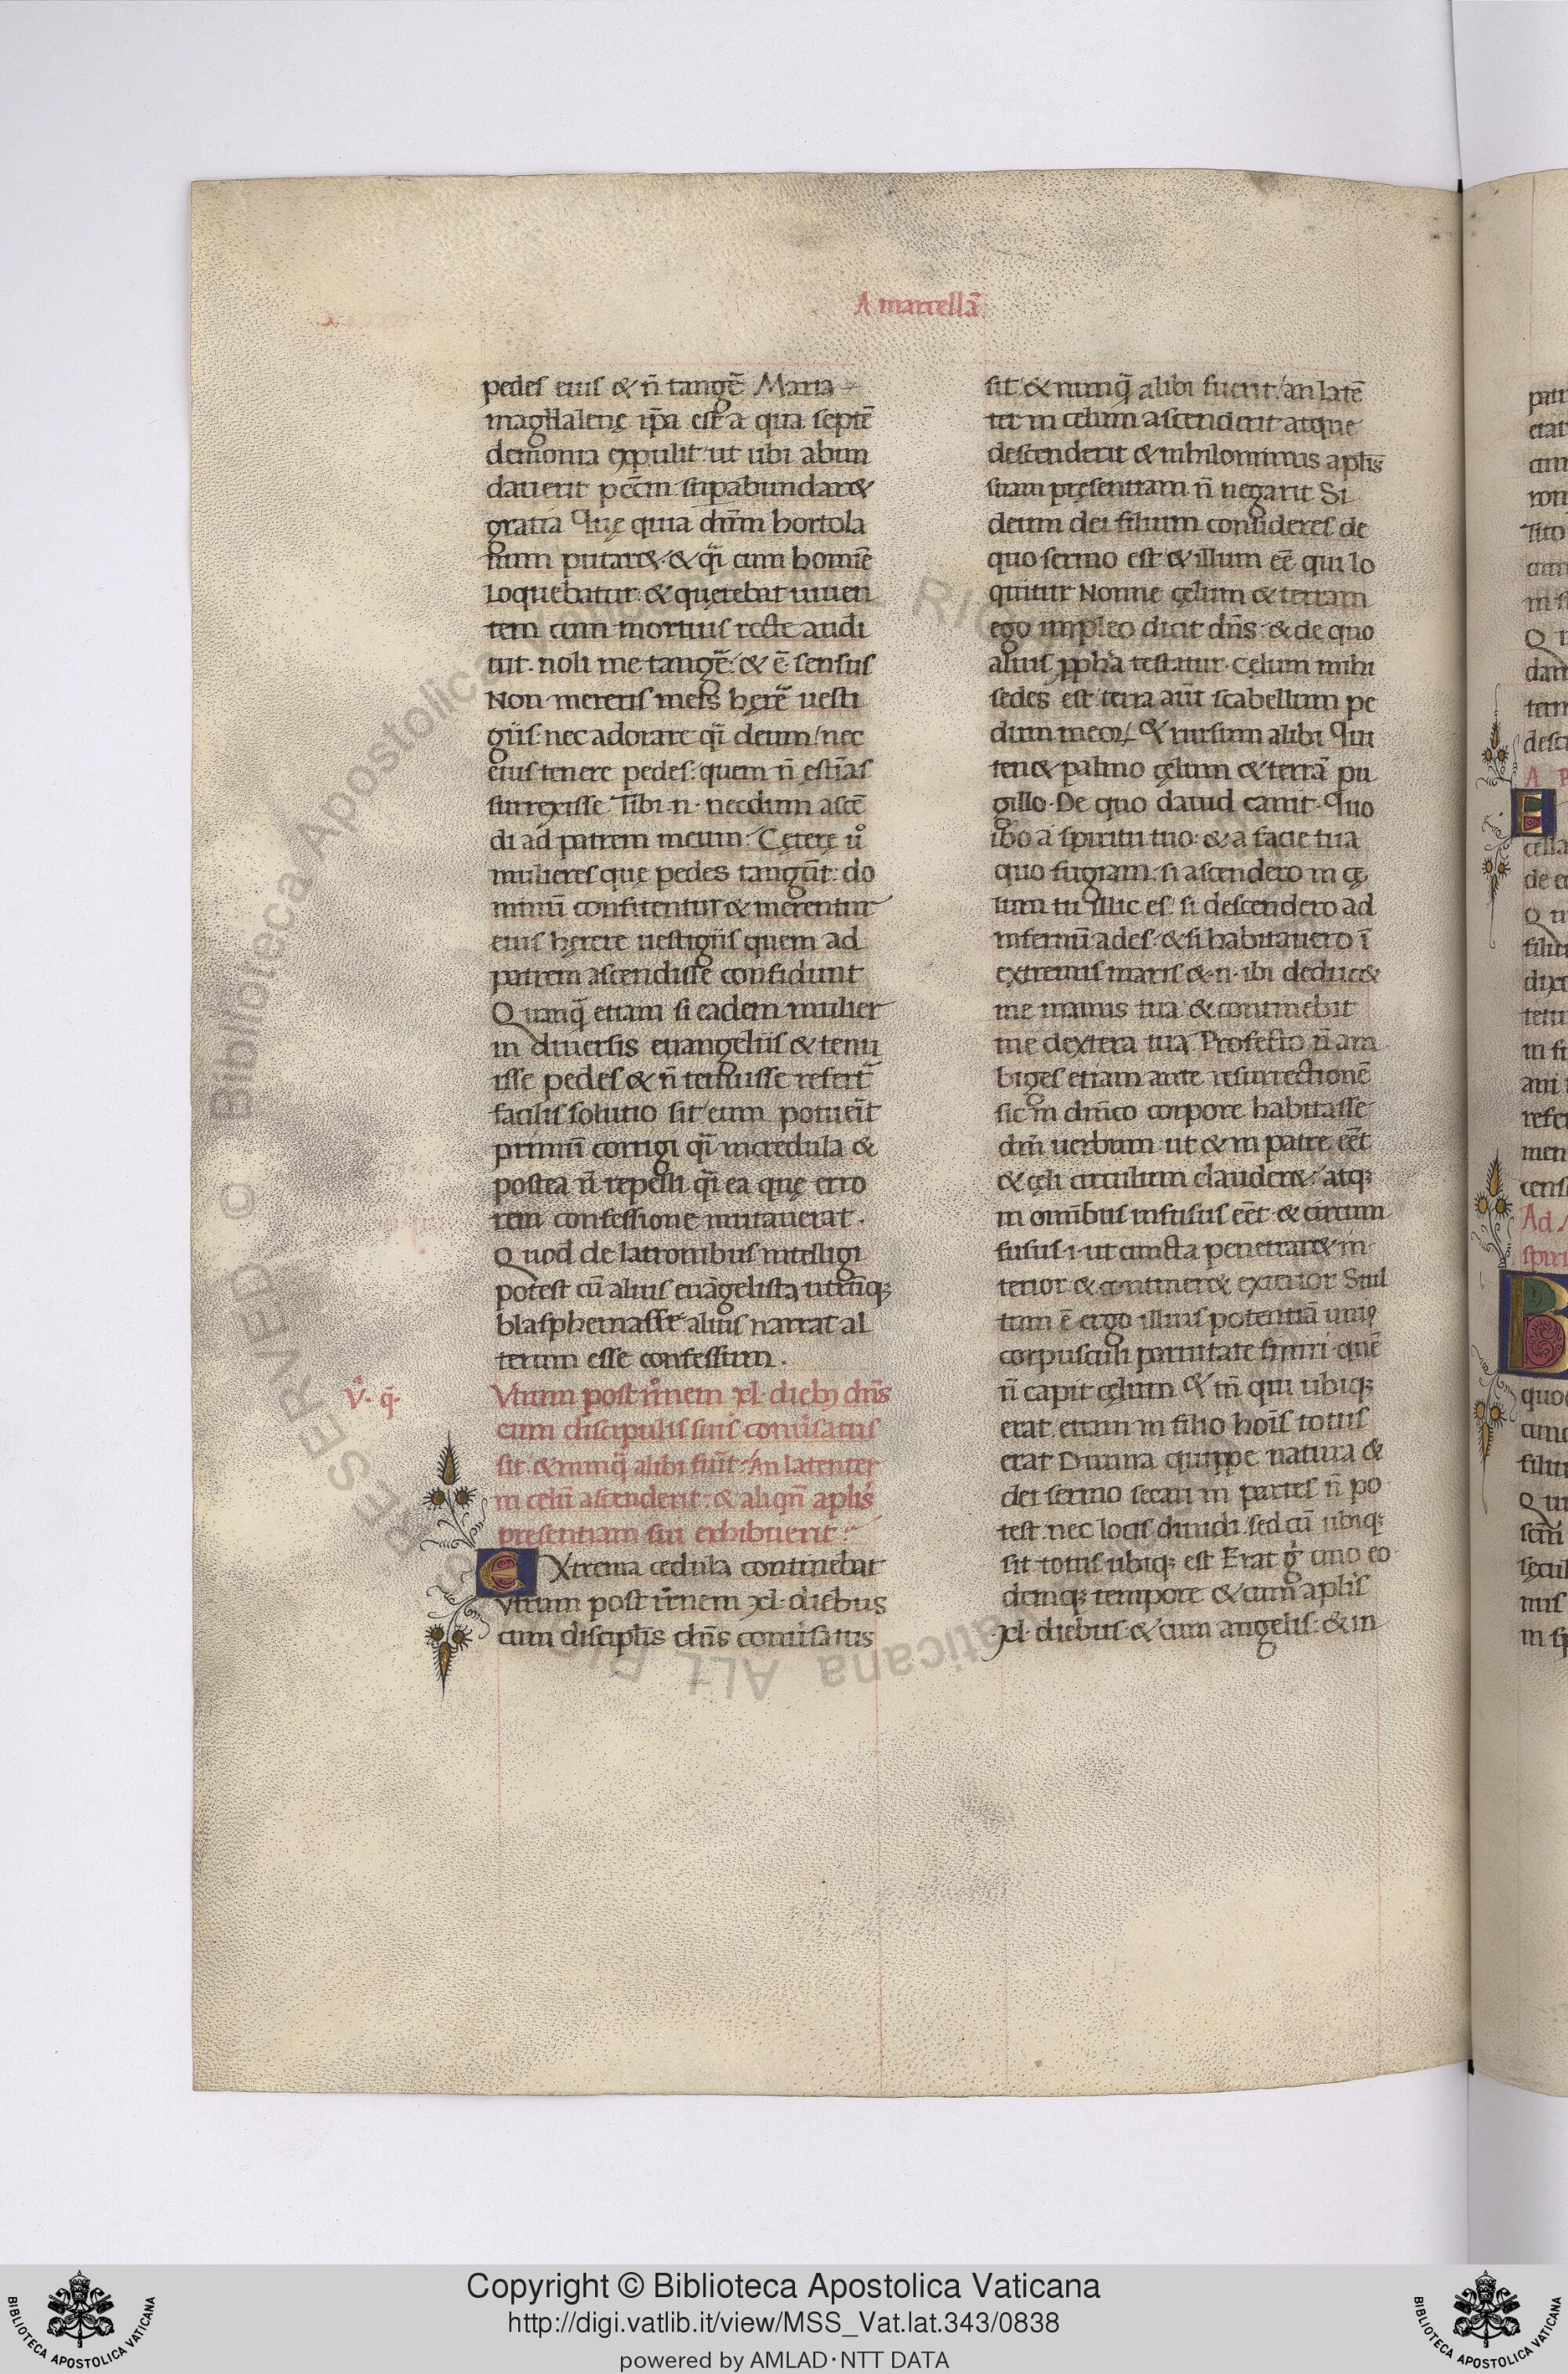 A marcellā
pedes eius & n̄ tangē Maria
magdalene ip̄a est a qua septē
demonia expulit ut ubi abun
dauerit pecc̄m sup̄abundar&
gratia Que quia dn̄m hortola
num putar& & q̄i cum homīe
loquebatur & querebat uiuen
tem cum mortuis recte audi
uit noli me tangē & ē sensus
Non mereris meis herē uesti
giis nec adorare q̄i deum nec
eius tenere pedes quem n̄ estīas
surrexisse Tibi n necdum ascē
di ad patrem meum Cetere ū
mulieres que pedes tangūt do
minū confitentur & merentur
eius herere uestigiis quem ad
patrem ascendisse confidunt
Quanq̄ etiam si eadem mulier
in diuersis euangeliis & tenu
isse pedes & n̄ tenuisse refert̄
facilis solutio sit cum potuerīt
primū corrigi q̄i incredula &
postea n̄ repelli q̄i ea que erro
rem confessione mutauerat
Quod de latronibus intelligi
potest cū alius euāgelista utrūq;
blasphemasse alius narrat al
terum esse confessum
V q̄
Vtrum post rr̄nem xl dieb; dn̄s
cum discipulis suis conuersatus
sit & nunq̄ alibi fuīt An latenter
in celū ascenderit & aliqn̄ aplis
presentiam sui exhibuerit
Extrema cedula continebat
Vtrum post rr̄nem xl diebus
cum discipl̄is dn̄s conuersatus
sit & nunq̄ alibi fuerit an latē
ter in celum ascenderit atque
descenderit & nihilominus aplīs
suam presentiam n̄ negarit Si
deum dei filium consideres de
quo sermo est & illum eē qui lo
quitur Nonne celum & terram
ego impleo dicit dn̄s & de quo
alius pph̄a testatur Celum mihi
sedes est terra aūt scabellum pe
dum meoꝝ & rursum alibi Qui
ten& palmo celum & terrā pu
gillo De quo dauid canit Quo
ibo a spiritu tuo & a facie tua
quo fugiam si ascendero in ce
lum tu illic es si descendero ad
infernū ades & si habitauero ī
extremis maris & n ibi deduc&
me manus tua & continebit
me dextera tua Profecto n̄ am
biges etiam ante resurrectionē
sic in dn̄ico corpore habitasse
dm̄ uerbum ut & in patre eēt
& celi circulum clauder& atq;
in omībus infusus eēt & circum
fusus i ut cuncta penetrar& in
terior & continer& exterior Stul
tum ē ergo illius potentiā uniꝰ
corpusculi paruitate finiri quē
n̄ capit celum & tn̄ qui ubiq;
erat etiam in filio hoīs totus
erat Diuina quippe natura &
dei sermo secari in partes n̄ po
test nec locis diuidi sed cū ubiq;
sit totus ubiq; est Erat g̊ uno eo
demq; tempore & cum aplis
xl diebus & cum angelis & in
Copyright © Biblioteca Apostolica Vaticana
http://digi.vatlib.it/view/MSS_Vat.lat.343/0838
powered by AMLAD·NTT DATA